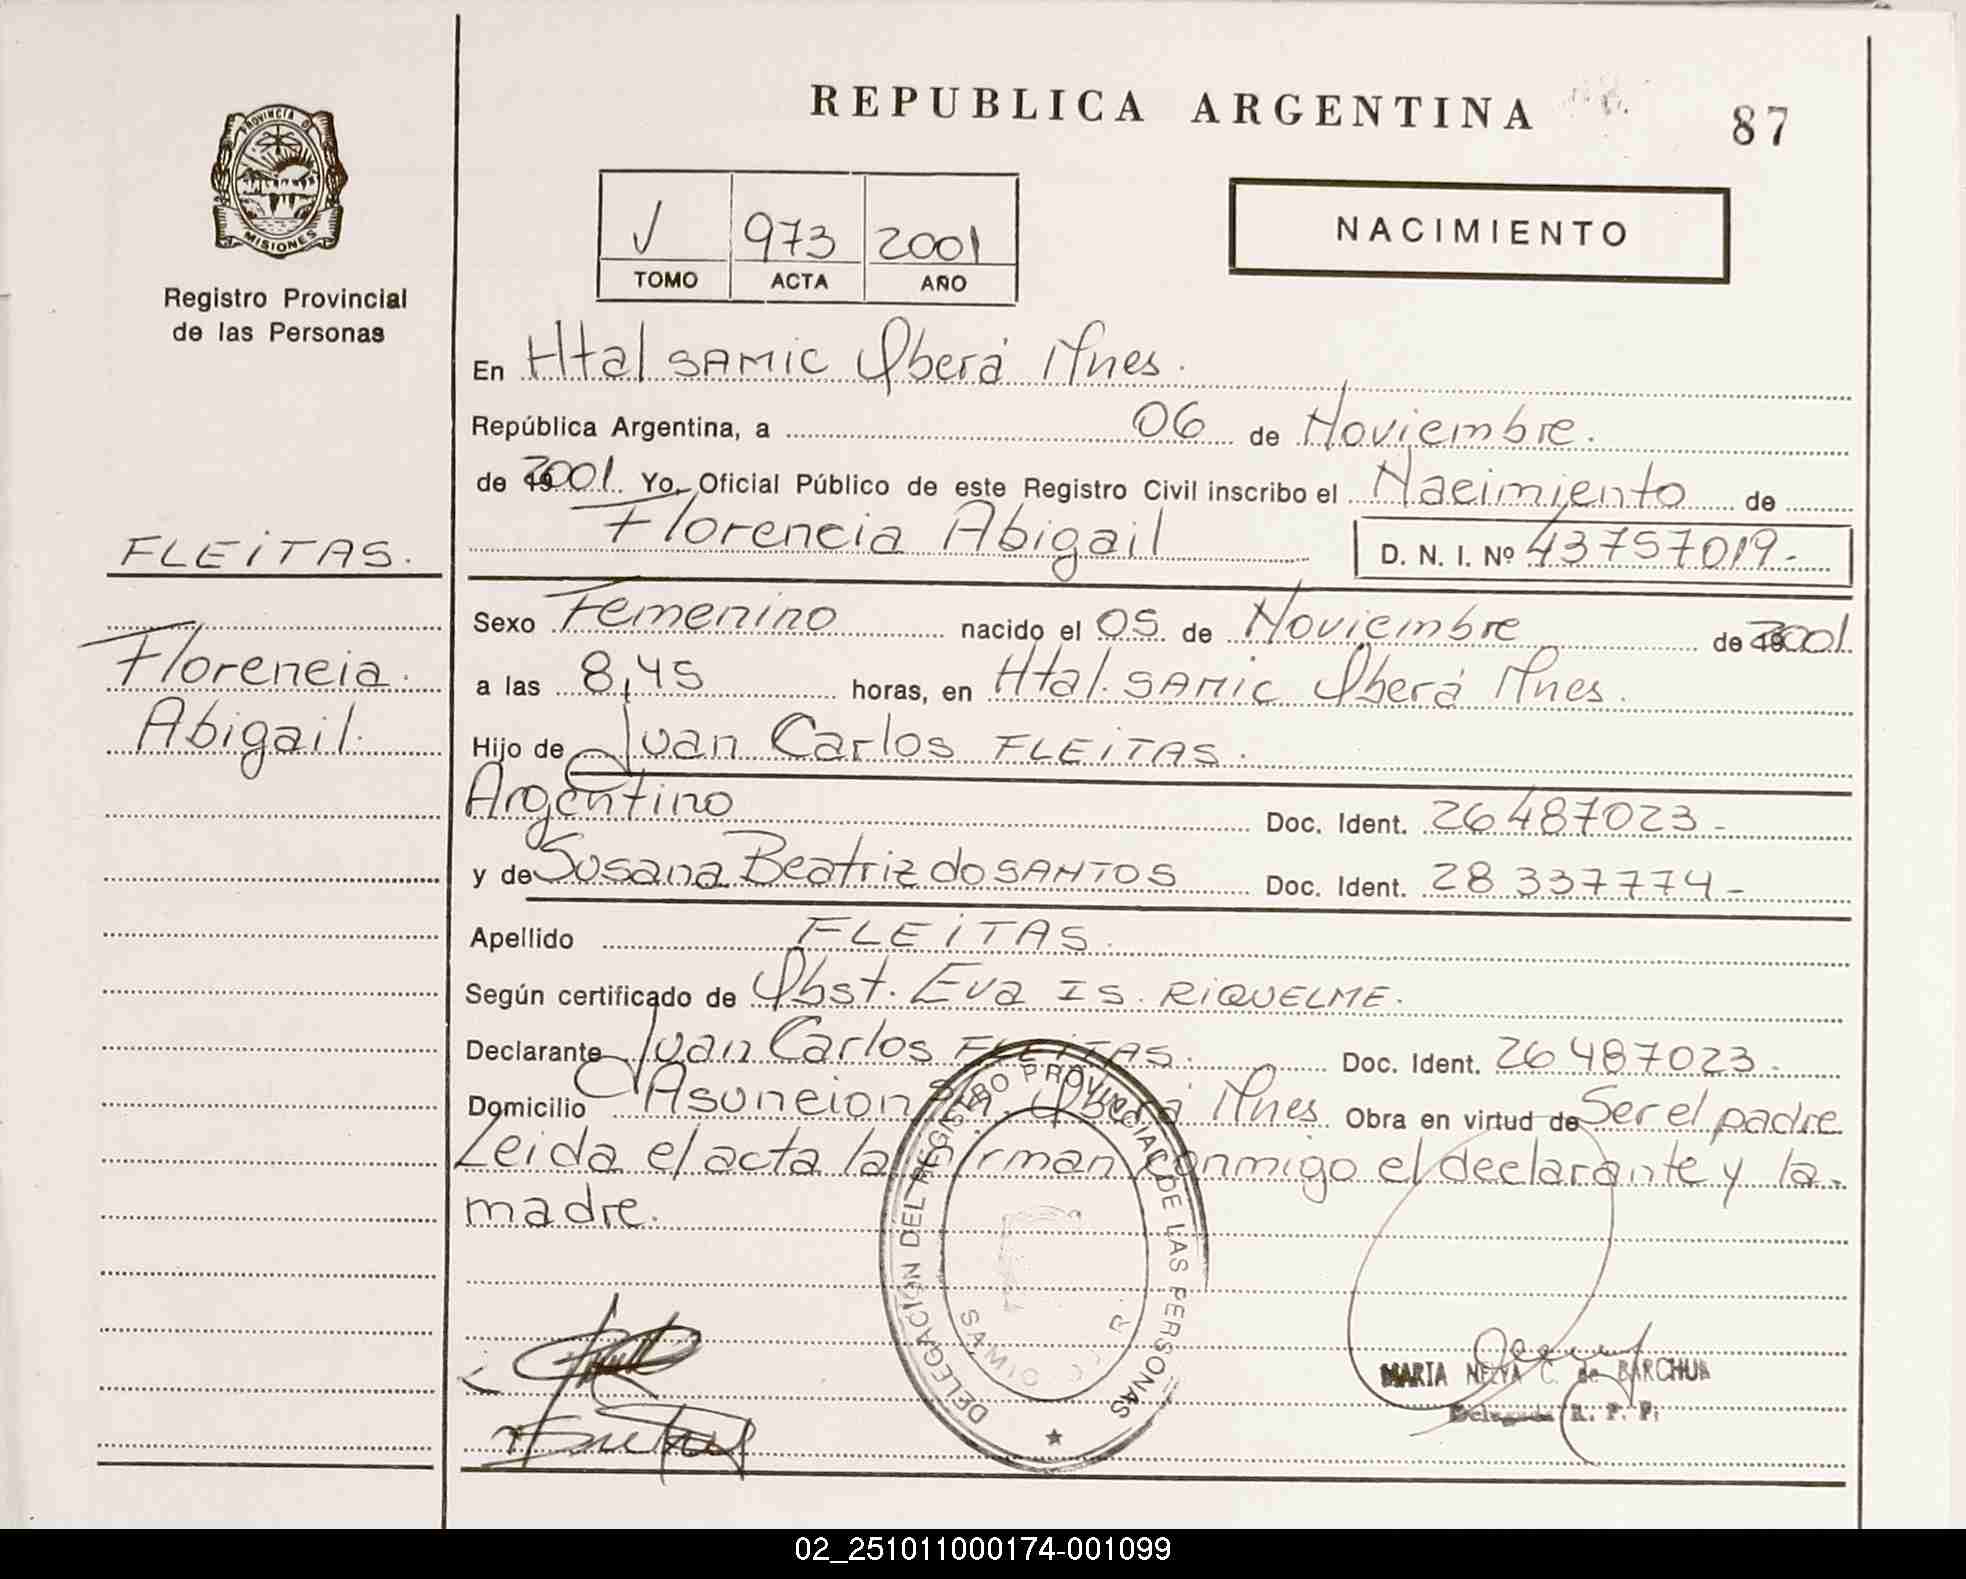 REPUBLICA ARGENTINA
87
PROVINCIA DE
MISIONES
Registro Provincial
de las Personas
V 973 2001
TOMO ACTA AÑO
NACIMIENTO
En Htal SAMIC Oberá Mnes.
República Argentina, a 06 de Noviembre.
de 2001. Yo, Oficial Público de este Registro Civil inscribo el Nacimiento de
Florencia Abigail D. N. I. Nº 43757019-
FLEiTAS.
Florencia
Abigail.
Sexo Femenino nacido el 05 de Noviembre de 2001.
a las 8,45 horas, en Htal. SAMIC Oberá Mnes.
Hijo de Juan Carlos FLEiTAS.
Argentino Doc. Ident. 26487023-
y de Susana Beatriz do SANTOS Doc. Ident. 28 337774-
Apellido FLEiTAS.
Según certificado de Obst. Eva IS. RiQUELME.
Declarante Juan Carlos FLEITAS. Doc. Ident. 26487023-
Domicilio Asuncion S/n. Oberá Mnes Obra en virtud de Ser el padre
Leida el acta la firman conmigo el declarante y la
madre.
DELEGACIÓN DEL REGISTRO PROVINCIAL DE LAS PERSONAS
MARIA NELYA C. de BARCHUK
Delegada R. P. P.
02_251011000174-001099